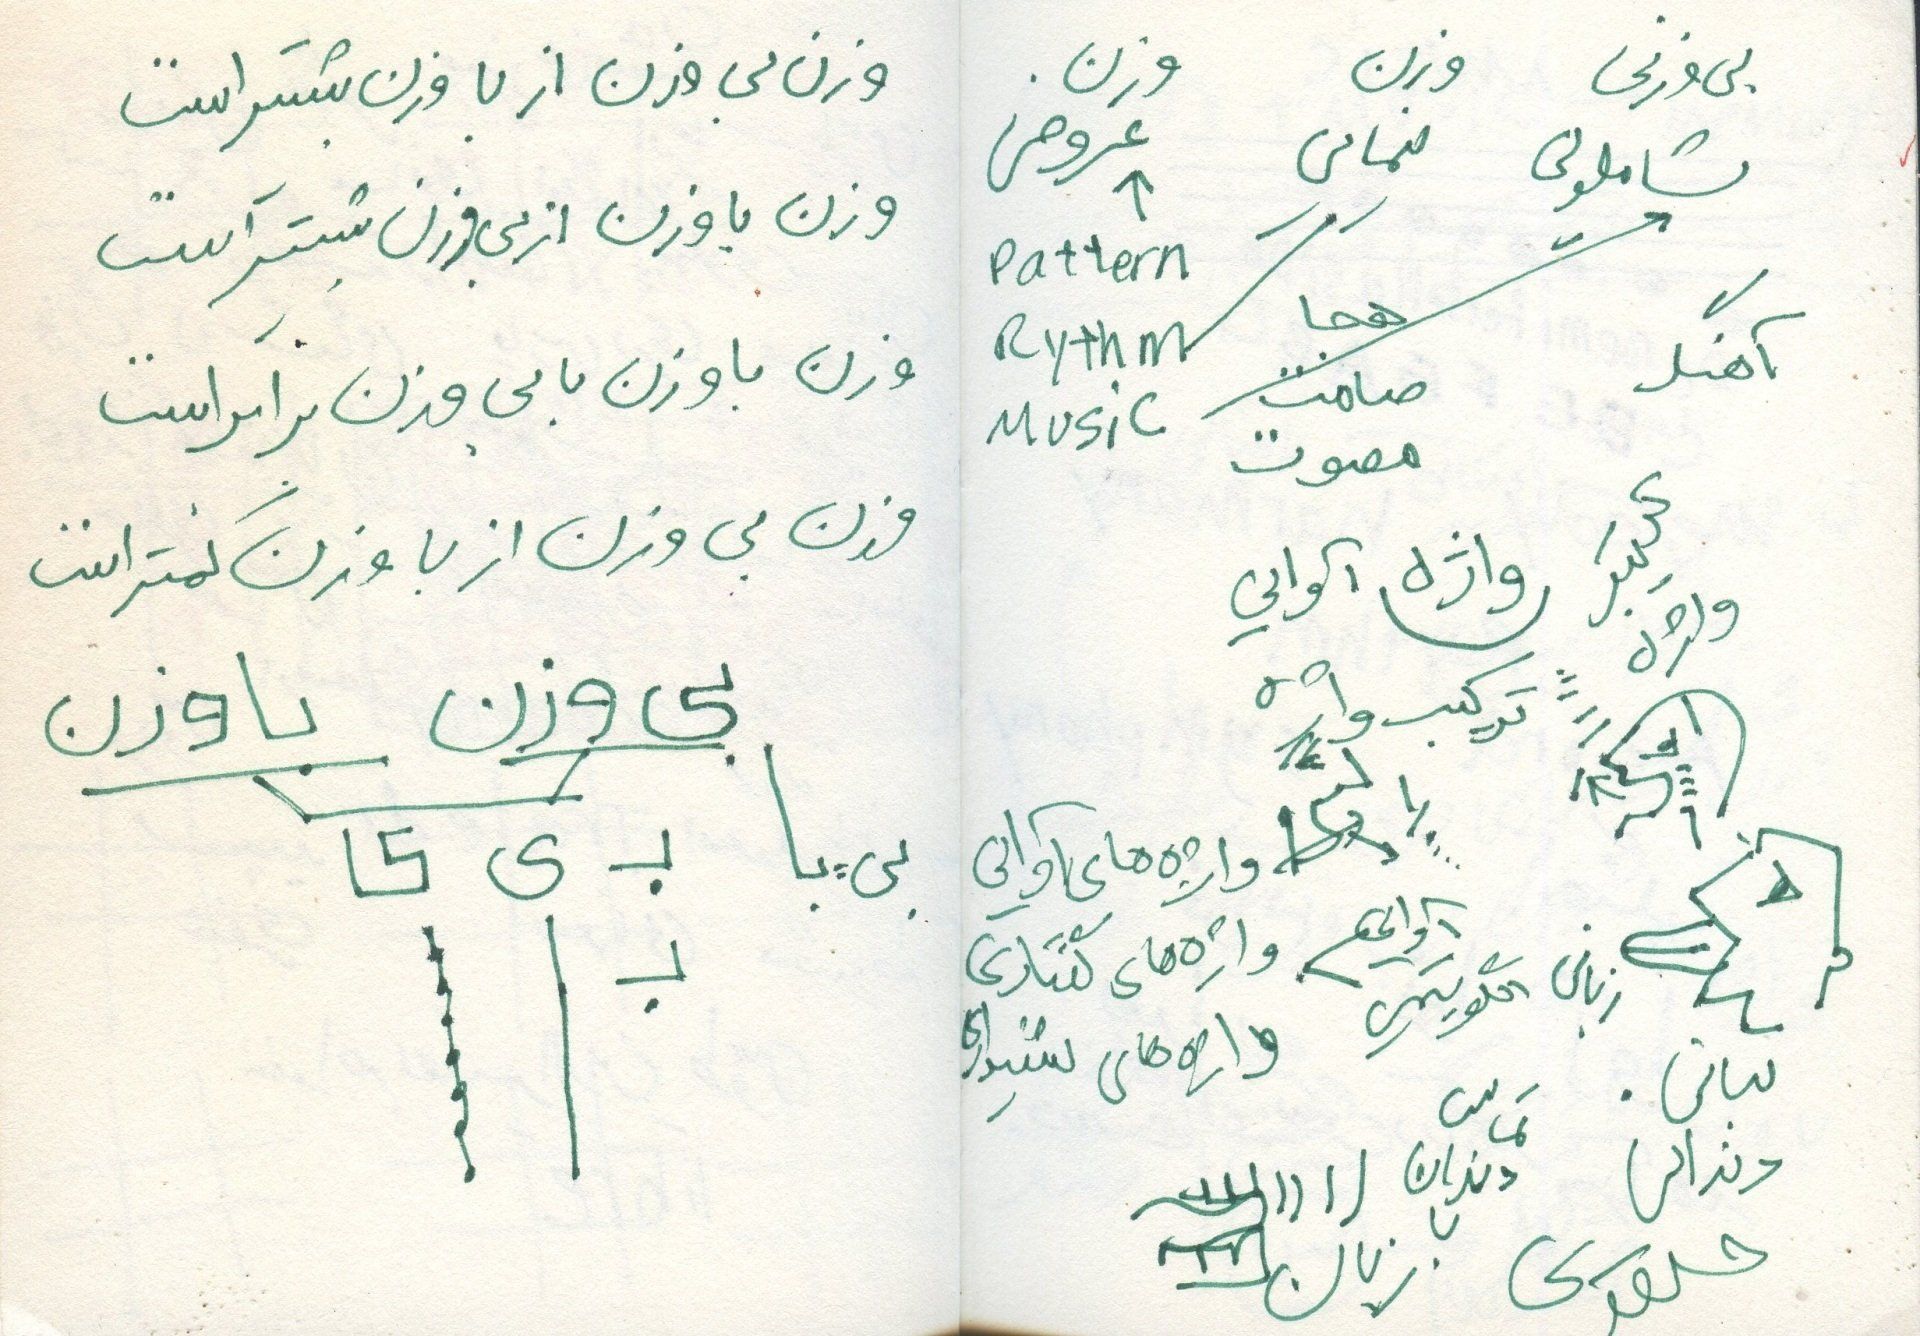 وزن بی وزن از با وزن بیشتر است
وزن با وزن از بی وزن بیشتر است
وزن با وزن با بی وزن برابر است
وزن بی وزن از با وزن کمتر است
بی وزن با وزن
بی با
بـ ی ا
بـ
بی وزنی وزن وزن
شاملوئی نیمائی عروض
Pattern
Rythm
Music
هجا
صامت
مصوت
آهنگ
واژه آوایی
واژه
ترکیب واژه
با
واژه های آوایی
آوایی
واژه های گفتاری
زبانی
واژه های شنیداری
لبانی
تماس
دندان
با
زبان
دندانی
حلقوی